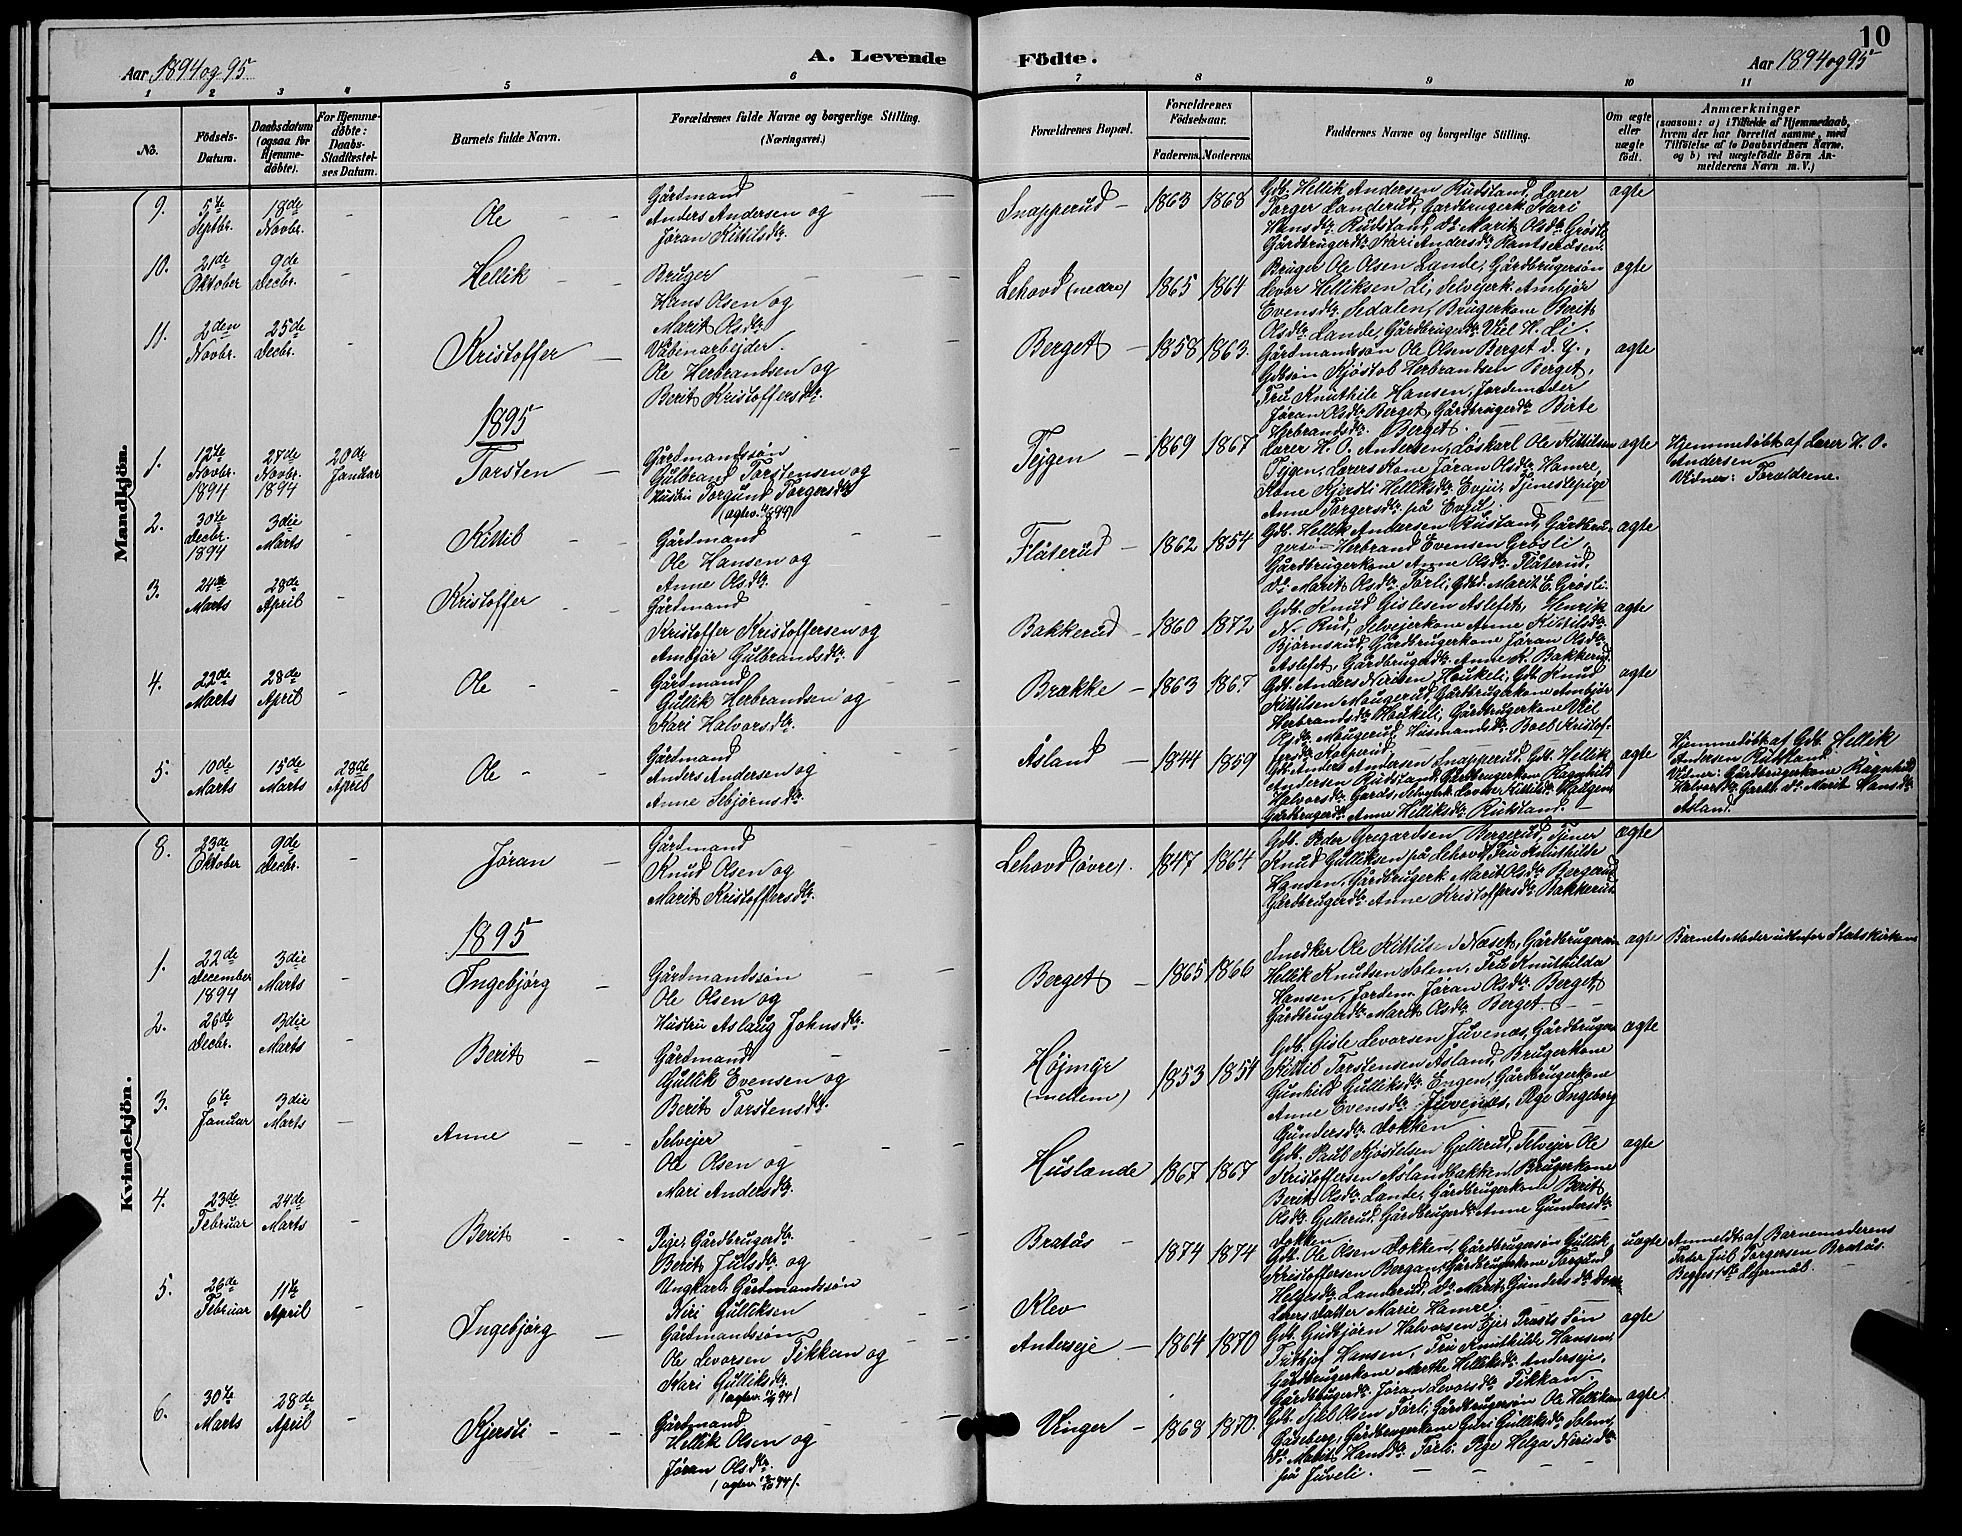 10
Aar 1894 og 95
A. Levende
Födte.
Aar 1894 og 95
1 2 3 4 5 6 7 8 9 10 11
No.
Födsels-Datum.
Daabsdatum (ogsaa for Hjemme-döbte).
For Hjemme-döbte: Daabs-Stadfæstel-ses Datum.
Barnets fulde Navn.
Forældrenes fulde Navne og borgerlige Stilling.
(Næringsvei.)
Forældrenes Bopæl.
Forældrenes Födselsaar.
Faderens. Moderens.
Faddernes Navne og borgerlige Stilling.
Om ægte eller uægte födt.
Anmærkninger
(saasom: a) i Tilfælde af Hjemmedaab,
hvem der har forrettet samme, med
Tilföielse af to Daabsvidners Navne,
og b) ved uægtefödte Börn An-
melderens Navn m. V.)
Mandkjön.
9. 5te Septbr. 18de Novbr. - Ole
Gårdmand
Anders Andersen og
Jöran Kittilsdtr.
Snapperud - 1863 1868
Gdb. Hellik Andersen Rudstand, Lærer
Torger Landerud, Gardbrugerk. Kari
Hansdtr. Rudstand, do Marit Olsdtr. Grösli,
Gårdbrugerdtr. Kari Andersdtr.
ægte
10. 21de Oktober 9de Decbr. - Hellik
Bruger
Hans Olsen og
Marit Olsdtr.
Lehovd (nedre) 1865 1864
Bruger Ole Olsen Lande, Gårdbrugersön
Levor Helliksen Li, Selvejerk. Ambjör
Evensdtr. Sedalen, Brugerkone Berit
Olsdtr. Lande, Gårdbrugerdtr. Viel H. Li.
ægte
11. 2den Novbr. 25de Decbr. - Kristoffer
Våbenarbejder.
Ole Herbrandsen og
Berit Kristoffersdtr.
Berget - 1858 1863.
Gårdmandssön Ole Olsen Berget d. y.,
Gdbsön Kjöstol Herbrandsen Berget,
Fru Knuthile Hansen, Jordemoder
Jöran Olsdtr. Berget, Gårdbrugerdtr. Birte
Herbrandsdtr. Berget.
ægte
1895
1. 12te Novbr. 1894 27de Novbr. 1894 20de Januar Torsten
Gårdmandssön
Gulbrand Torstensen og
Hustru Torgund Torgersdtr.
Tejgen - 1869 1867
Lærer H. O. Andersen, Löskarl Ole Kittilsen
Tejgen, Lærers Kone Jöran Olsdtr. Hamre,
Kone Kjersti Helliksdtr. Evju, Tjenestepige
Anne Torgersdtr. på Evju.
ægte
Hjemmedöbt af Lærer H. O.
Andersen
Vidner: Forældrene.
2. 30te Decbr. 1894 3die Marts - Kittil
Gårdmand
Ole Hansen og
Anne Olsdtr.
Flåterud - 1862 1854
Gdb. Hellik Andersen Rustand, Gårdbru-
gersön Herbrand Evensen Grösli,
Gårdbrugerkone Anne Olsdtr. Flåterud,
do Marit Olsdtr. Törli, Gdbd. Marit E. Grösli.
ægte
3. 24de Marts 28de April - Kristoffer
Gårdmand
Kristoffer Kristoffersen og
Ambjör Gulbrandsdtr.
Bakkerud - 1860 1872
Gdb. Knud Gislesen Aslefet, Henrik
N. Rud, Selvejerkone Anne Kittilsdtr.
Björnsrud, Gårdbrugerkone Jöran Olsdtr.
Aslefet, Gårdbrugerdtr. Anne K. Bakkerud.
ægte
4. 22de Marts 28de April - Ole
Gårdmand
Gullik Herbrandsen og
Kari Halvorsdtr.
Brække - 1863 1867
Gdb. Anders Nirisen Houkeli, Gdb. Knud
Kittilsen Mougerud, Gårdbrugerkone Ambjör
Herbrandsdtr. Houkeli, Gårdbrugerkone Viel
Olsdtr. Mougerud, Husmandsdtr. Boel Kristof-
fersdtr.
ægte
5. 10de Marts 15de Marts 28de April Ole
Gårdmand
Anders Andersen og
Anne Sebjörnsdtr.
Åsland - 1844 1859
Gdb. Anders Andersen Snapperud, Gdb. Hellik
Andersen Rudstand, Gårdbrugerkone Ragnhild
Halvorsdtr. Gards,
Gårdbrugerdtr. Anne Helliksdtr. Rudstand.
ægte
Hjemmedöbt af Gdb. Hellik
Andersen Rudstand
Vidner: Gårdbrugerkone Ragnhild
Halvorsdtr. do Marit Hansdtr.
Åsland.
Kvindekjön.
8. 23de Oktober 9de Decbr. - Jöran
Gårdmand
Knud Olsen og
Marit Kristoffersdtr.
Lehovd (övre). 1847 1864
Gdb. Peder Gregardsen Bergerud, Tjener
Knud Gulliksen på Lehovd, Fru Knuthilde
Hansen, Gårdbrugerk. Marit Olsdtr. Bergerud
Gårdbrugerdtr. Anne Kristoffersdtr. Bakkerud
ægte
1895
1. 22de December 1894 3die Marts - Ingebjörg
Gårdmandssön
Ole Olsen og
Hustru Aslaug Johnsdtr.
Berget - 1865 1866
Snedker Ole Kittilsen Næset, Gårdbrugersön
Hellik Knutsen Solem, Fru Knuthilda
Hansen, Jordem. Jöran Olsdtr. Berget,
Gårdbrugerdtr. Marit Olsdtr. Berget
ægte
Barnets Moder udenfor Statskirken
2. 26de Decbr. 3die Marts - Berit
Gårdmand
Gullik Evensen og
Berit Torstensdtr.
Höjmyr (mellem) 1853 1854
Gdb. Gisle Levorsen Juvenæs, Gårdbruger
Kittil Torstensen Åsland, Brugerkone
Gunhild Gulliksdtr. Engen, Gårdbrugerkone
Anne Evensdtr. Juvenæs, Pige Ingeborg
Gundersdtr. Dokken
ægte
3. 6te Januar 3die Marts - Anne
Selvejer
Ole Olsen og
Mari Andersdtr.
Huslande 1867 1867
Gdb. Paul Kjöstelsen Gjellerud, Selvejer Ole
Kristoffersen Åslandbakken, Brugerkone
Berit Olsdtr. Lande, Gårdbrugerkone Berit
Olsdtr. Gjellerud, Gårdbrugerdtr. Anne Gundersdtr.
Dokken
ægte
4. 23de Februar 24de Marts - Berit
Pige, Gårdbrugerdtr.
Berit Julsdtr. og
Ungkarl, Gårdmandssön
Niri Gulliksen
Bratås - 1874 1874
Klev
Gdb. Ole Olsen Dokken, Gårdbrugersön Gullik
Kristoffersen Bergan, Gårdbrugerkone Torgund
Helgesdtr. Landerud, do Marit Gundersdtr.
Lærers Datter Marie Hamre.
uægte
Anmeldt af Barnemoderens
Fader Jul Torgersen Bratås.
Begges 1ste Lejermål.
5. 26de Februar 11te April - Ingebjörg
Gårdmandssön
Ole Levorsen Tikkan og
Kari Gulliksdtr.
Anderseje - 1864 1870
Gdb. Gudbjörn Halvorsen Eje, Prests Sön
Frithjof Hansen, Fru Knuthilde Hansen,
Gårdbrugerkone Marthe Helliksdtr. Anderseje,
Gårdbrugerdtr. Jöran Levorsdtr. Tikkan.
ægte
6. 30te Marts 28de April - Kjersti
Gårdmand
Hellik Olsen og
Jöran Olsdtr.
Vinger - 1868 1870.
Gdb. Olsen Törli, Gårdbrugersön Ole Helliksen
Gåseberg, Gårdbrugerkone Guri Gulliksdtr. Solem,
do Marit Hansdtr. Törli, Pige Helga Nirisdtr.
på Juveli.
ægte